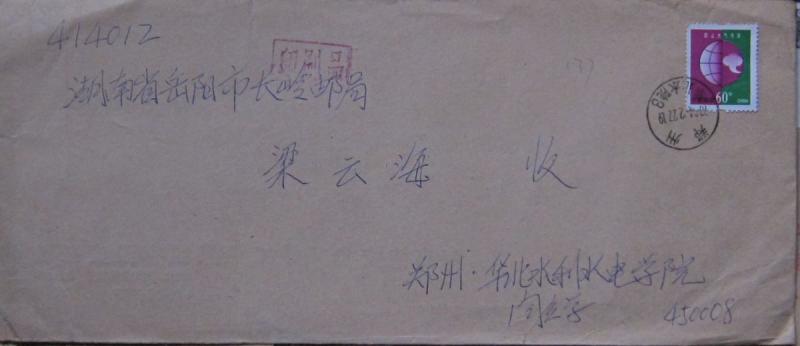 414012
印刷品
湖南省岳阳市长岭邮局
梁云海 收
郑州·华北水利水电学院
450008
60分
郑州